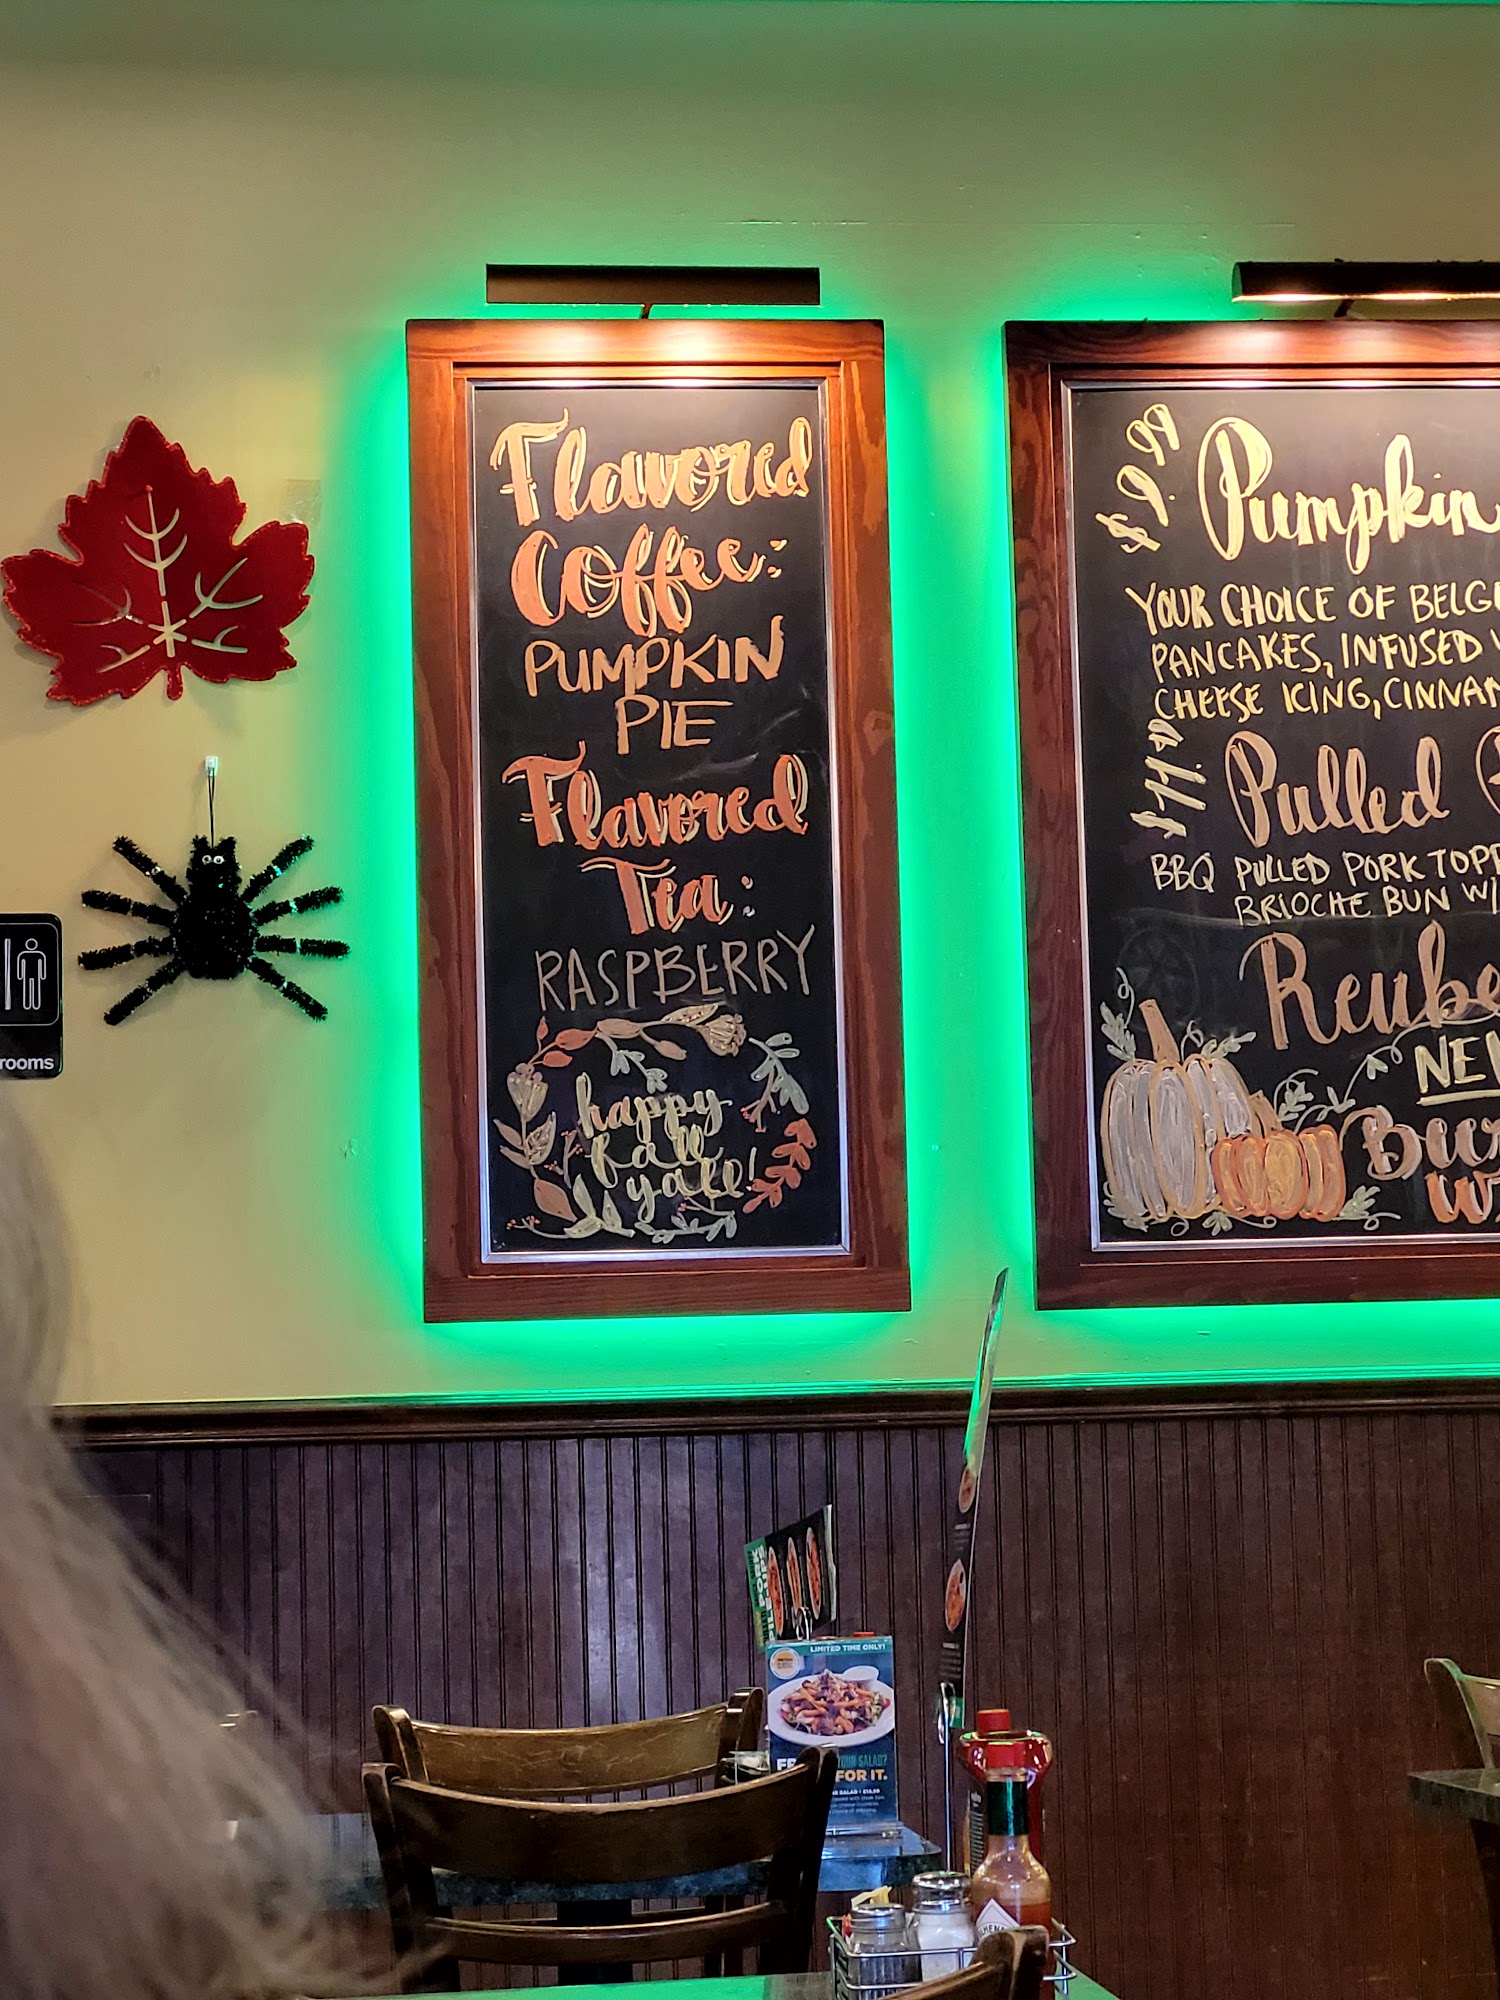 Flavored
Coffee:
PUMPKIN
PIE
Flavored
Tea:
RASPBERRY
happy
fall
y'all!
Pumpkin
YOUR CHOICE OF BELGI
PANCAKES, INFUSED
CHEESE ICING, CINNAM
Pulled
BBQ PULLED PORK TOPP
BRIOCHE BUN W/
Reube
NEW
Bur
W
rooms
LIMITED TIME ONLY!
YOUR SALAD?
FOR IT.